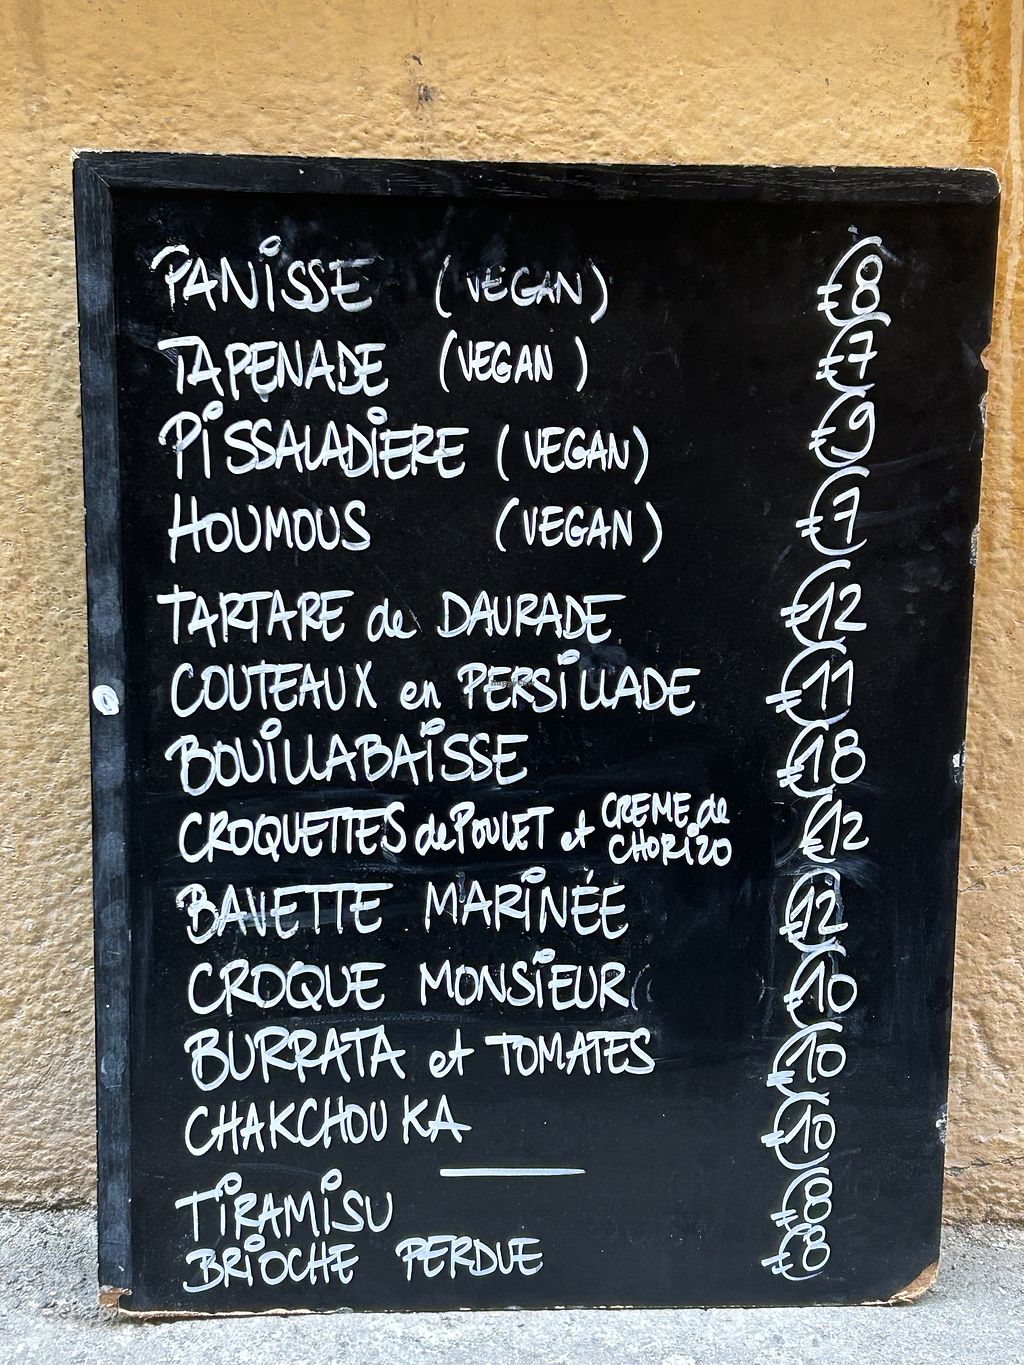 PANISSE (VEGAN) €8
TAPENADE (VEGAN) €7
PISSALADIERE (VEGAN) €9
HOUMOUS (VEGAN) €7
TARTARE de DAURADE €12
COUTEAUX en PERSILLADE €11
BOUILLABAISSE €18
CROQUETTES de POULET et CREME de CHORIZO €12
BAVETTE MARINÉE €12
CROQUE MONSIEUR €10
BURRATA et TOMATES €10
CHAKCHOUKA €10
TIRAMISU €8
BRIOCHE PERDUE €8